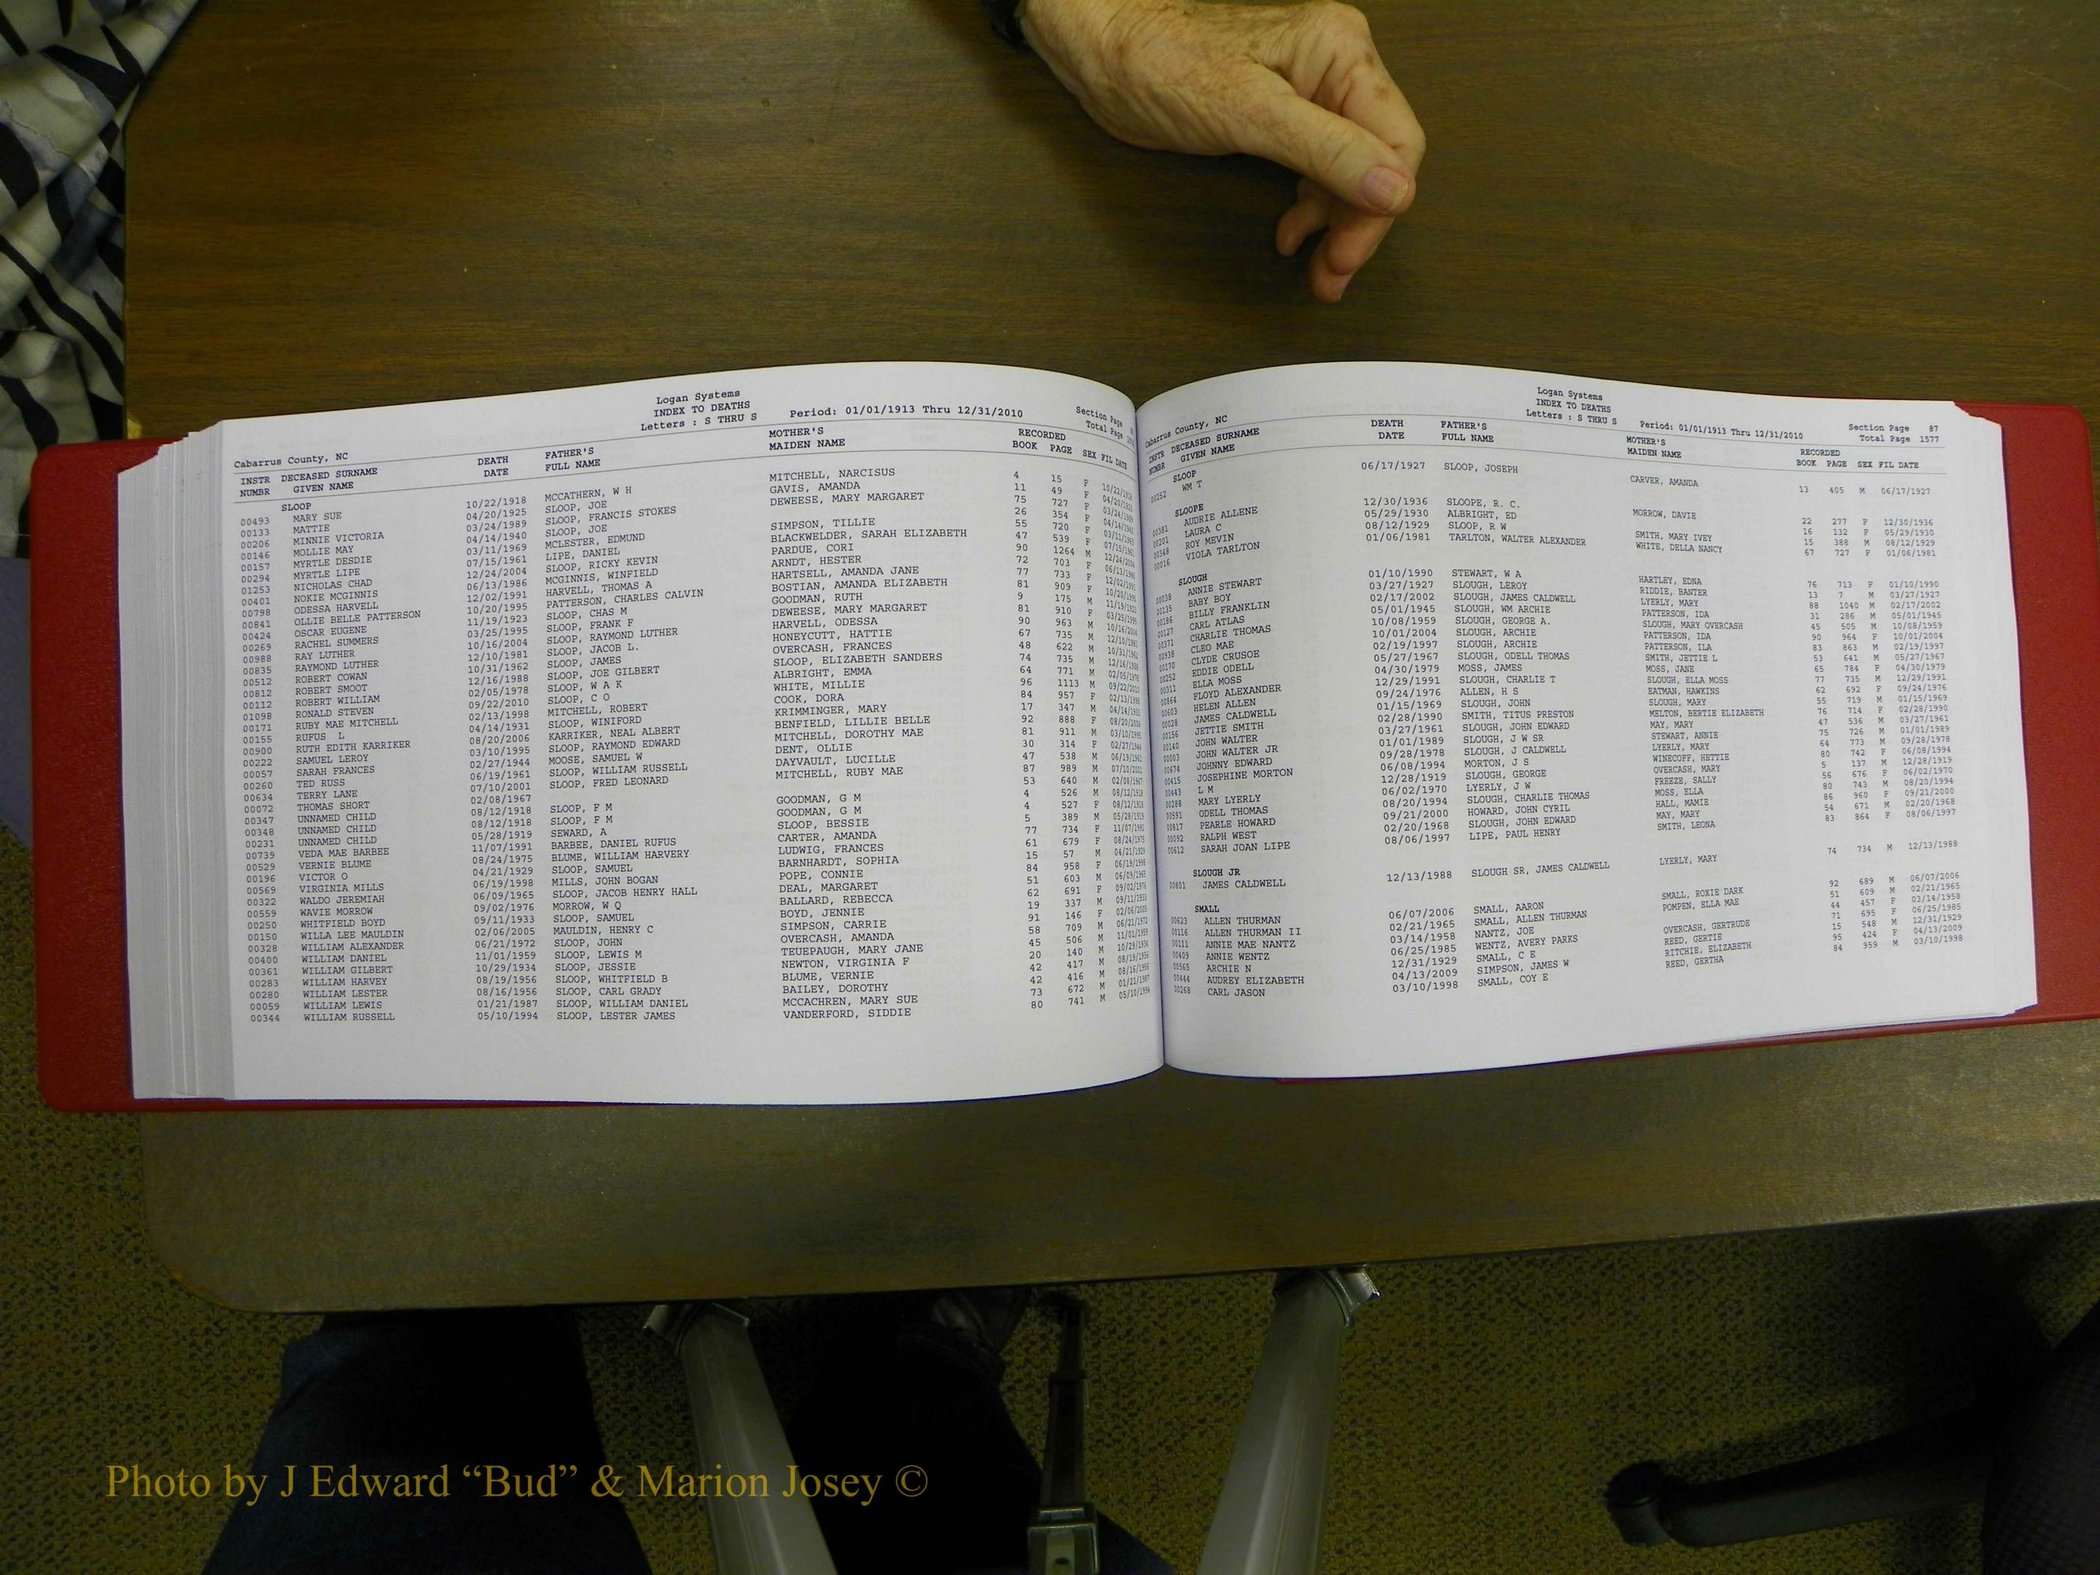 Logan Systems
INDEX TO DEATHS
Letters : S THRU S Period: 01/01/1913 Thru 12/31/2010 Section Page
Cabarrus County, NC Total Page
INSTR DECEASED SURNAME DEATH FATHER'S MOTHER'S RECORDED
NUMBR GIVEN NAME DATE FULL NAME MAIDEN NAME BOOK PAGE SEX FIL DATE
SLOOP
00493 MARY SUE 10/22/1918 MCCATHERN, W H MITCHELL, NARCISUS 4 15 F 10/22/1918
00133 MATTIE 04/20/1925 SLOOP, JOE GAVIS, AMANDA 11 49 F 04/20/1925
00206 MINNIE VICTORIA 03/24/1989 SLOOP, FRANCIS STOKES DEWEESE, MARY MARGARET 75 727 F 03/24/1989
00146 MOLLIE MAY 04/14/1940 SLOOP, JOE 26 354 F 04/14/1940
00157 MYRTLE DESDIE 03/11/1969 MCLESTER, EDMUND SIMPSON, TILLIE 55 720 F 03/11/1969
00294 MYRTLE LIPE 07/15/1961 LIPE, DANIEL BLACKWELDER, SARAH ELIZABETH 47 539 F 07/15/1961
01253 NICHOLAS CHAD 12/24/2004 SLOOP, RICKY KEVIN PARDUE, CORI 90 1264 M 12/24/2004
00401 NOKIE MCGINNIS 06/13/1986 MCGINNIS, WINFIELD ARNDT, HESTER 72 703 F 06/13/1986
00798 ODESSA HARVELL 12/02/1991 HARVELL, THOMAS A HARTSELL, AMANDA JANE 77 733 F 12/02/1991
00841 OLLIE BELLE PATTERSON 10/20/1995 PATTERSON, CHARLES CALVIN BOSTIAN, AMANDA ELIZABETH 81 909 F 10/20/1995
00424 OSCAR EUGENE 11/19/1923 SLOOP, CHAS M GOODMAN, RUTH 9 175 M 11/19/1923
00269 RACHEL SUMMERS 03/25/1995 SLOOP, FRANK F DEWEESE, MARY MARGARET 81 910 F 03/25/1995
00988 RAY LUTHER 10/16/2004 SLOOP, RAYMOND LUTHER HARVELL, ODESSA 90 963 M 10/16/2004
00835 RAYMOND LUTHER 12/10/1981 SLOOP, JACOB L. HONEYCUTT, HATTIE 67 735 M 12/10/1981
00512 ROBERT COWAN 10/31/1962 SLOOP, JAMES OVERCASH, FRANCES 48 622 M 10/31/1962
00812 ROBERT SMOOT 12/16/1988 SLOOP, JOE GILBERT SLOOP, ELIZABETH SANDERS 74 735 M 12/16/1988
00112 ROBERT WILLIAM 02/05/1978 SLOOP, W A K ALBRIGHT, EMMA 64 771 M 02/05/1978
01098 RONALD STEVEN 09/22/2010 SLOOP, C O WHITE, MILLIE 96 1113 M 09/22/2010
00171 RUBY MAE MITCHELL 02/13/1998 MITCHELL, ROBERT COOK, DORA 84 957 F 02/13/1998
00155 RUFUS L 04/14/1931 SLOOP, WINIFORD KRIMMINGER, MARY 17 347 M 04/14/1931
00900 RUTH EDITH KARRIKER 08/20/2006 KARRIKER, NEAL ALBERT BENFIELD, LILLIE BELLE 92 888 F 08/20/2006
00222 SAMUEL LEROY 03/10/1995 SLOOP, RAYMOND EDWARD MITCHELL, DOROTHY MAE 81 911 M 03/10/1995
00057 SARAH FRANCES 02/27/1944 MOOSE, SAMUEL W DENT, OLLIE 30 314 F 02/27/1944
00260 TED RUSS 06/19/1961 SLOOP, WILLIAM RUSSELL DAYVAULT, LUCILLE 47 538 M 06/19/1961
00634 TERRY LANE 07/10/2001 SLOOP, FRED LEONARD MITCHELL, RUBY MAE 87 989 M 07/10/2001
00072 THOMAS SHORT 02/08/1967 53 640 M 02/08/1967
00347 UNNAMED CHILD 08/12/1918 SLOOP, F M GOODMAN, G M 4 526 M 08/12/1918
00348 UNNAMED CHILD 08/12/1918 SLOOP, F M GOODMAN, G M 4 527 F 08/12/1918
00231 UNNAMED CHILD 05/28/1919 SEWARD, A SLOOP, BESSIE 5 389 M 05/28/1919
00739 VEDA MAE BARBEE 11/07/1991 BARBEE, DANIEL RUFUS CARTER, AMANDA 77 734 F 11/07/1991
00529 VERNIE BLUME 08/24/1975 BLUME, WILLIAM HARVERY LUDWIG, FRANCES 61 679 F 08/24/1975
00196 VICTOR O 04/21/1929 SLOOP, SAMUEL BARNHARDT, SOPHIA 15 57 M 04/21/1929
00569 VIRGINIA MILLS 06/19/1998 MILLS, JOHN BOGAN POPE, CONNIE 84 958 F 06/19/1998
00322 WALDO JEREMIAH 06/09/1965 SLOOP, JACOB HENRY HALL DEAL, MARGARET 51 603 M 06/09/1965
00559 WAVIE MORROW 09/02/1976 MORROW, W Q BALLARD, REBECCA 62 691 F 09/02/1976
00250 WHITFIELD BOYD 09/11/1933 SLOOP, SAMUEL BOYD, JENNIE 19 337 M 09/11/1933
00150 WILLA LEE MAULDIN 02/06/2005 MAULDIN, HENRY C SIMPSON, CARRIE 91 146 F 02/06/2005
00328 WILLIAM ALEXANDER 06/21/1972 SLOOP, JOHN OVERCASH, AMANDA 58 709 M 06/21/1972
00400 WILLIAM DANIEL 11/01/1959 SLOOP, LEWIS M TEUEPAUGH, MARY JANE 45 506 M 11/01/1959
00361 WILLIAM GILBERT 10/29/1934 SLOOP, JESSIE NEWTON, VIRGINIA F 20 140 M 10/29/1934
00283 WILLIAM HARVEY 08/19/1956 SLOOP, WHITFIELD B BLUME, VERNIE 42 417 M 08/19/1956
00280 WILLIAM LESTER 08/16/1956 SLOOP, CARL GRADY BAILEY, DOROTHY 42 416 M 08/16/1956
00059 WILLIAM LEWIS 01/21/1987 SLOOP, WILLIAM DANIEL MCCACHREN, MARY SUE 73 672 M 01/21/1987
00344 WILLIAM RUSSELL 05/10/1994 SLOOP, LESTER JAMES VANDERFORD, SIDDIE 80 741 M 05/10/1994
Logan Systems
INDEX TO DEATHS
Letters : S THRU S Period: 01/01/1913 Thru 12/31/2010 Section Page 87
Cabarrus County, NC Total Page 1577
INSTR DECEASED SURNAME DEATH FATHER'S MOTHER'S RECORDED
NUMBR GIVEN NAME DATE FULL NAME MAIDEN NAME BOOK PAGE SEX FIL DATE
SLOOP
00252 WM T 06/17/1927 SLOOP, JOSEPH CARVER, AMANDA 13 405 M 06/17/1927
SLOOPE
00381 AUDRIE ALLENE 12/30/1936 SLOOPE, R. C. MORROW, DAVIE 22 277 F 12/30/1936
00201 LAURA C 05/29/1930 ALBRIGHT, ED 16 132 F 05/29/1930
00348 ROY MEVIN 08/12/1929 SLOOP, R W SMITH, MARY IVEY 15 388 M 08/12/1929
00016 VIOLA TARLTON 01/06/1981 TARLTON, WALTER ALEXANDER WHITE, DELLA NANCY 67 727 F 01/06/1981
SLOUGH
00038 ANNIE STEWART 01/10/1990 STEWART, W A HARTLEY, EDNA 76 713 F 01/10/1990
00135 BABY BOY 03/27/1927 SLOUGH, LEROY RIDDIE, BANTER 13 7 M 03/27/1927
00186 BILLY FRANKLIN 02/17/2002 SLOUGH, JAMES CALDWELL LYERLY, MARY 88 1040 M 02/17/2002
00127 CARL ATLAS 05/01/1945 SLOUGH, WM ARCHIE PATTERSON, IDA 31 286 M 05/01/1945
00371 CHARLIE THOMAS 10/08/1959 SLOUGH, GEORGE A. SLOUGH, MARY OVERCASH 45 505 M 10/08/1959
00938 CLEO MAE 10/01/2004 SLOUGH, ARCHIE PATTERSON, IDA 90 964 F 10/01/2004
00170 CLYDE CRUSOE 02/19/1997 SLOUGH, ARCHIE PATTERSON, ILA 83 863 M 02/19/1997
00252 EDDIE ODELL 05/27/1967 SLOUGH, ODELL THOMAS SMITH, JETTIE L 53 641 M 05/27/1967
00311 ELLA MOSS 04/30/1979 MOSS, JAMES MOSS, JANE 65 784 F 04/30/1979
00864 FLOYD ALEXANDER 12/29/1991 SLOUGH, CHARLIE T SLOUGH, ELLA MOSS 77 735 M 12/29/1991
00603 HELEN ALLEN 09/24/1976 ALLEN, H S EATMAN, HAWKINS 62 692 F 09/24/1976
00028 JAMES CALDWELL 01/15/1969 SLOUGH, JOHN SLOUGH, MARY 55 719 M 01/15/1969
00156 JETTIE SMITH 02/28/1990 SMITH, TITUS PRESTON MELTON, BERTIE ELIZABETH 76 714 F 02/28/1990
00140 JOHN WALTER 03/27/1961 SLOUGH, JOHN EDWARD MAY, MARY 47 536 M 03/27/1961
00003 JOHN WALTER JR 01/01/1989 SLOUGH, J W SR STEWART, ANNIE 75 726 M 01/01/1989
00674 JOHNNY EDWARD 09/28/1978 SLOUGH, J CALDWELL LYERLY, MARY 64 773 M 09/28/1978
00415 JOSEPHINE MORTON 06/08/1994 MORTON, J S WINECOFF, HETTIE 80 742 F 06/08/1994
00443 L M 12/28/1919 SLOUGH, GEORGE OVERCASH, MARY 5 137 M 12/28/1919
00288 MARY LYERLY 06/02/1970 LYERLY, J W FREEZE, SALLY 56 676 F 06/02/1970
00591 ODELL THOMAS 08/20/1994 SLOUGH, CHARLIE THOMAS MOSS, ELLA 80 743 M 08/20/1994
00817 PEARLE HOWARD 09/21/2000 HOWARD, JOHN CYRIL HALL, MAMIE 86 960 F 09/21/2000
00092 RALPH WEST 02/20/1968 SLOUGH, JOHN EDWARD MAY, MARY 54 671 M 02/20/1968
00612 SARAH JOAN LIPE 08/06/1997 LIPE, PAUL HENRY SMITH, LEONA 83 864 F 08/06/1997
SLOUGH JR
00801 JAMES CALDWELL 12/13/1988 SLOUGH SR, JAMES CALDWELL LYERLY, MARY 74 734 M 12/13/1988
SMALL
00623 ALLEN THURMAN 06/07/2006 SMALL, AARON SMALL, ROXIE DARK 92 689 M 06/07/2006
00116 ALLEN THURMAN II 02/21/1965 SMALL, ALLEN THURMAN POMPEN, ELLA MAE 51 609 M 02/21/1965
00111 ANNIE MAE NANTZ 03/14/1958 NANTZ, JOE 44 457 F 03/14/1958
00409 ANNIE WENTZ 06/25/1985 WENTZ, AVERY PARKS OVERCASH, GERTRUDE 71 695 F 06/25/1985
00565 ARCHIE N 12/31/1929 SMALL, C E REED, GERTIE 15 548 M 12/31/1929
00444 AUDREY ELIZABETH 04/13/2009 SIMPSON, JAMES W RITCHIE, ELIZABETH 95 424 F 04/13/2009
00268 CARL JASON 03/10/1998 SMALL, COY E REED, GERTHA 84 959 M 03/10/1998
Photo by J Edward “Bud” & Marion Josey ©